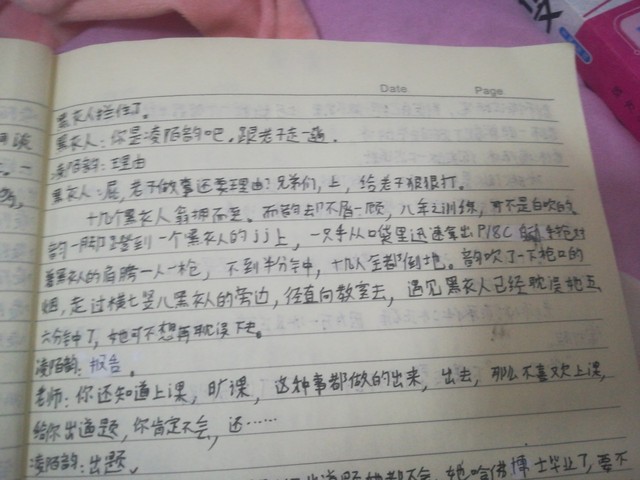 Date Page
黑衣人拦住了。
黑衣人：你是凌陌韵吧。跟老子走一趟。
凌陌韵：理由
黑衣人：屁，老子做事还要理由？兄弟们，上，给老子狠狠打。
十几个黑衣人蜂拥而至。而韵却不屑一顾，八年之训练，可不是白吹的。
韵一脚踹到一个黑衣人的jj上，一只手从口袋里迅速拿出P18C 手枪对
着黑衣人的肩膀一人一枪，不到半分钟，十几人全都倒地。韵吹了一下枪口的
烟，走过横七竖八黑衣人的旁边，径直向教室去，遇见黑衣人已经耽误她五
六分钟了，她可不想再耽误下去。
凌陌韵：报告。
老师：你还知道上课，旷课，这种事都做的出来，出去，那么不喜欢上课，
给你出道题，你肯定不会，还……
凌陌韵：出题。
道题她都不会，她哈佛博士毕业了，要不